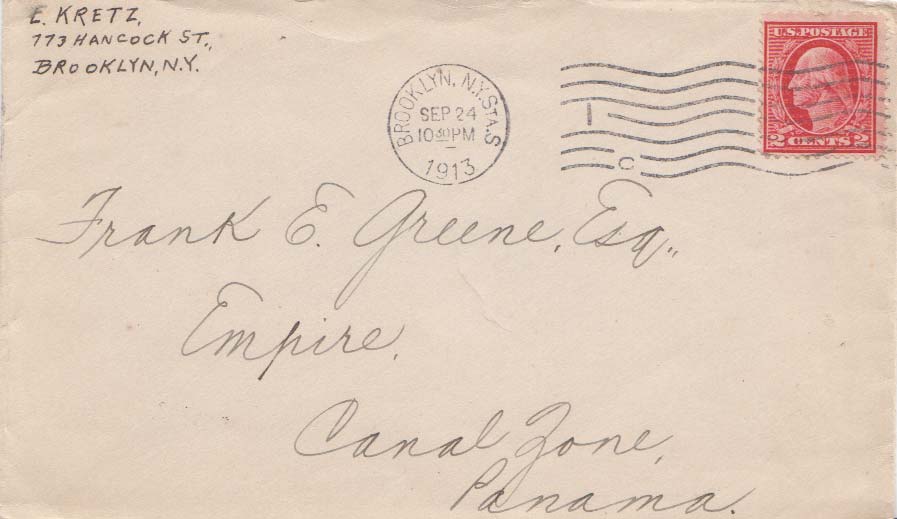 E. KRETZ,
773 HANCOCK ST.,
BROOKLYN, N.Y.
BROOKLYN, N.Y. STA. S
SEP 24
10 30 PM
1913
1
C
U.S. POSTAGE
2 CENTS 2
Frank E. Greene, Esq.,
Empire,
Canal Zone,
Panama.